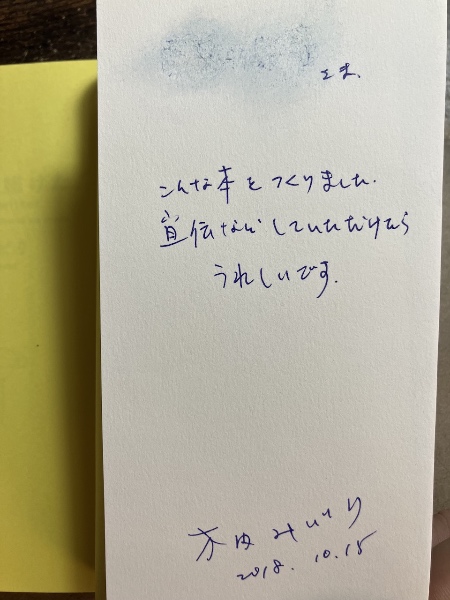 さま、
こんな本をつくりました.
宣伝などしていただけたら
うれしいです.
2018.10.15